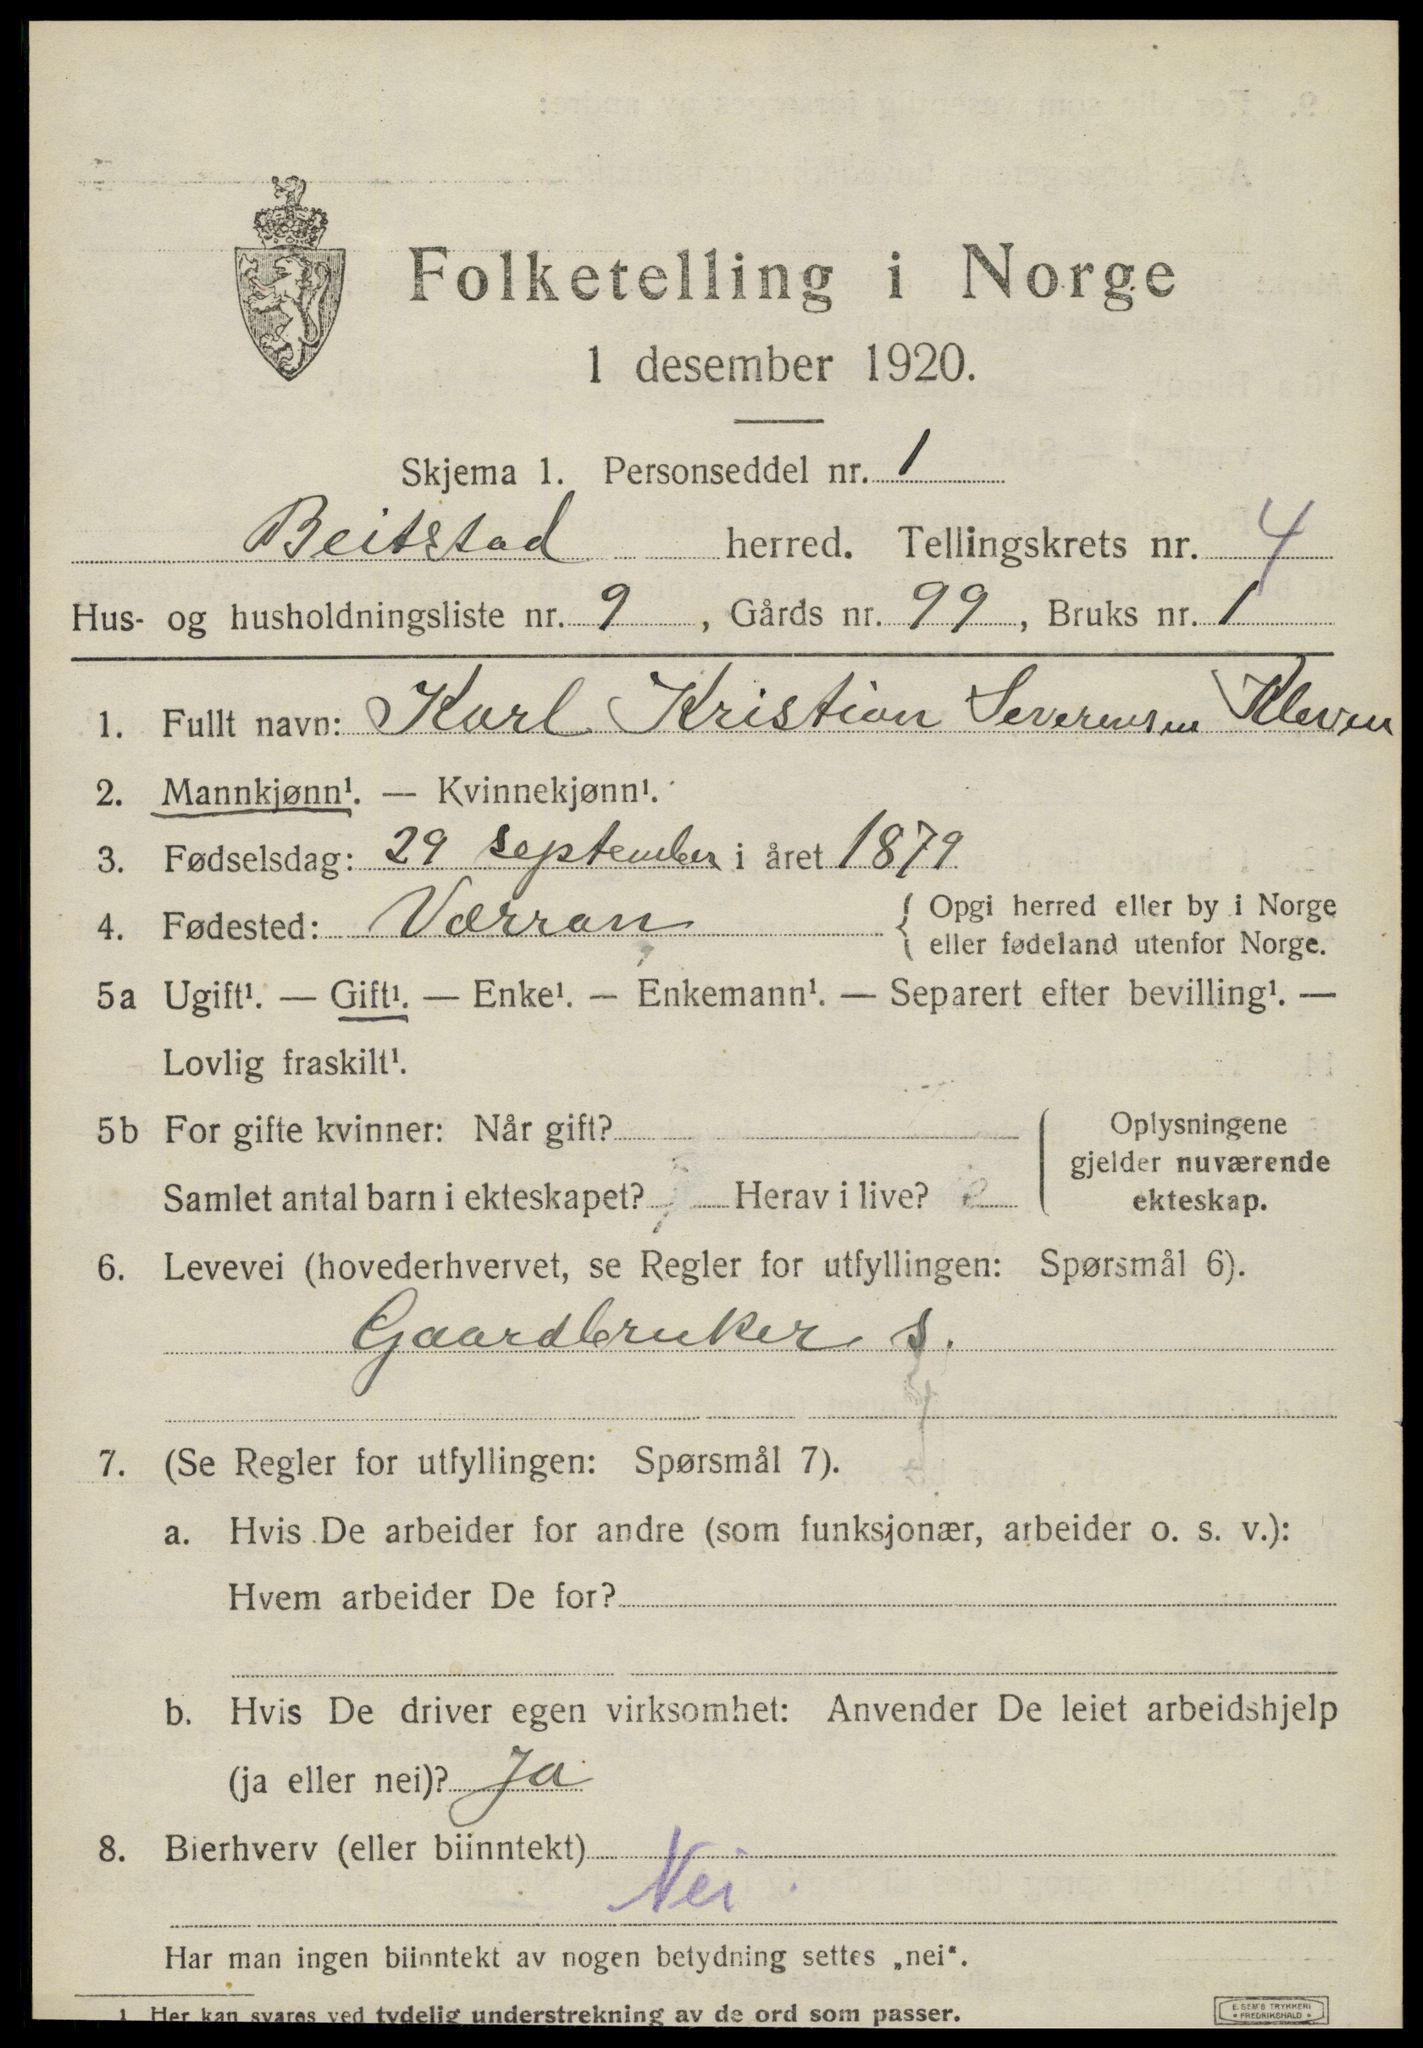 Folketelling i Norge
1 desember 1920.
Skjema 1. Personseddel nr. 1
Beitstad herred. Tellingskrets nr. 4
Hus- og husholdningsliste nr. 9, Gårds nr. 99, Bruks nr. 1
1. Fullt navn: Karl Kristian Severensen Kleven
2. Mannkjønn¹. — Kvinnekjønn¹.
3. Fødselsdag: 29 september i året 1879
4. Fødested: Værran { Opgi herred eller by i Norge
eller fødeland utenfor Norge.
5a Ugift¹. — Gift¹. — Enke¹. — Enkemann¹. — Separert efter bevilling¹. —
Lovlig fraskilt¹.
5b For gifte kvinner: Når gift?
Samlet antal barn i ekteskapet? Herav i live?
{ Oplysningene
gjelder nuværende
ekteskap.
6. Levevei (hovederhvervet, se Regler for utfyllingen: Spørsmål 6).
Gaardbruker s.
7. (Se Regler for utfyllingen: Spørsmål 7).
a. Hvis De arbeider for andre (som funksjonær, arbeider o. s. v.):
Hvem arbeider De for?
b. Hvis De driver egen virksomhet: Anvender De leiet arbeidshjelp
(ja eller nei)? Ja
8. Bierhverv (eller biinntekt)
Nei
Har man ingen biinntekt av nogen betydning settes „nei“.
1 Her kan svares ved tydelig understrekning av de ord som passer.
E. SEM'S TRYKKERI
FREDRIKSHALD